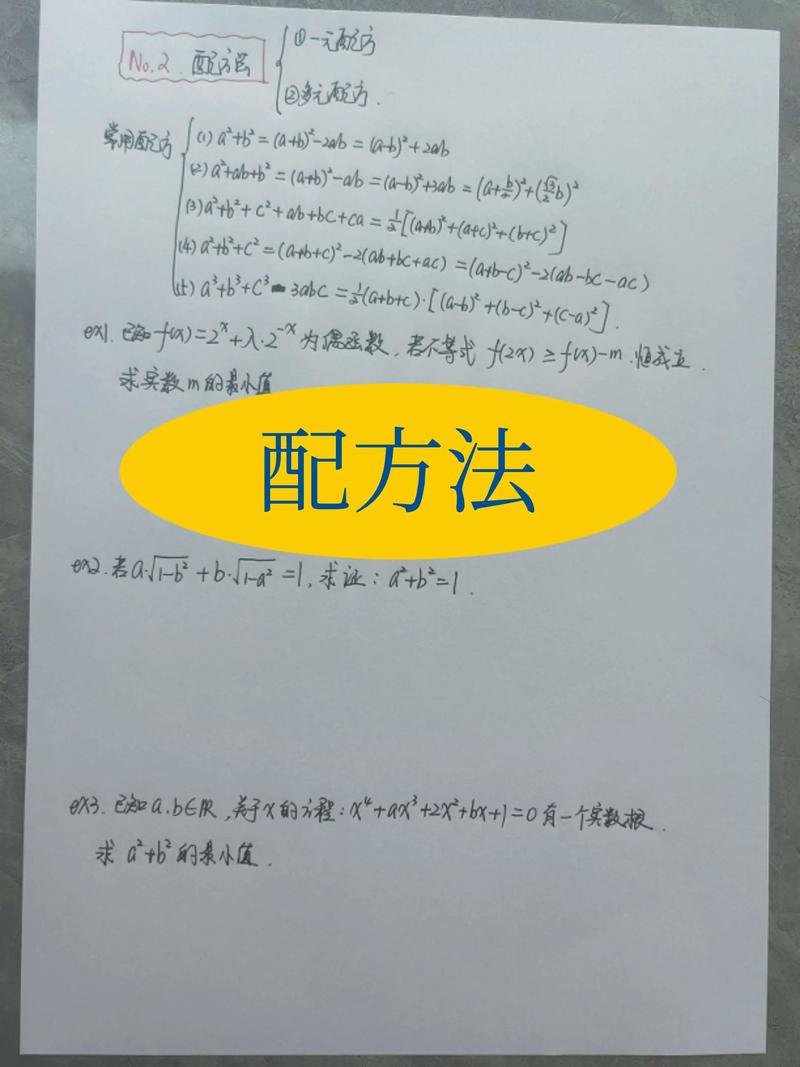 No.2. 配方法 { ①一元配方
②多元配方.
常用配方 { (1) a²+b² = (a+b)²-2ab = (a-b)²+2ab
(2) a²+ab+b² = (a+b)²-ab = (a-b)²+3ab = (a+b/2)²+(√3/2 b)²
(3) a²+b²+c²+ab+bc+ca = 1/2[(a+b)²+(a+c)²+(b+c)²]
(4) a²+b²+c² = (a+b+c)²-2(ab+bc+ac) = (a+b-c)²-2(ab-bc-ac)
(5) a³+b³+c³-3abc = 1/2(a+b+c)·[(a-b)²+(b-c)²+(c-a)²].
ex1. 已知 f(x)=2ˣ+λ·2⁻ˣ 为偶函数, 若不等式 f(2x) ≥ f(x)-m 恒成立.
求实数m的最小值
配方法
ex2. 若a·√(1-b²) + b·√(1-a²) =1, 求证: a²+b²=1.
ex3. 已知a.b∈R, 关于x的方程: x⁴+ax³+2x²+bx+1=0有一个实数根.
求 a²+b²的最小值.